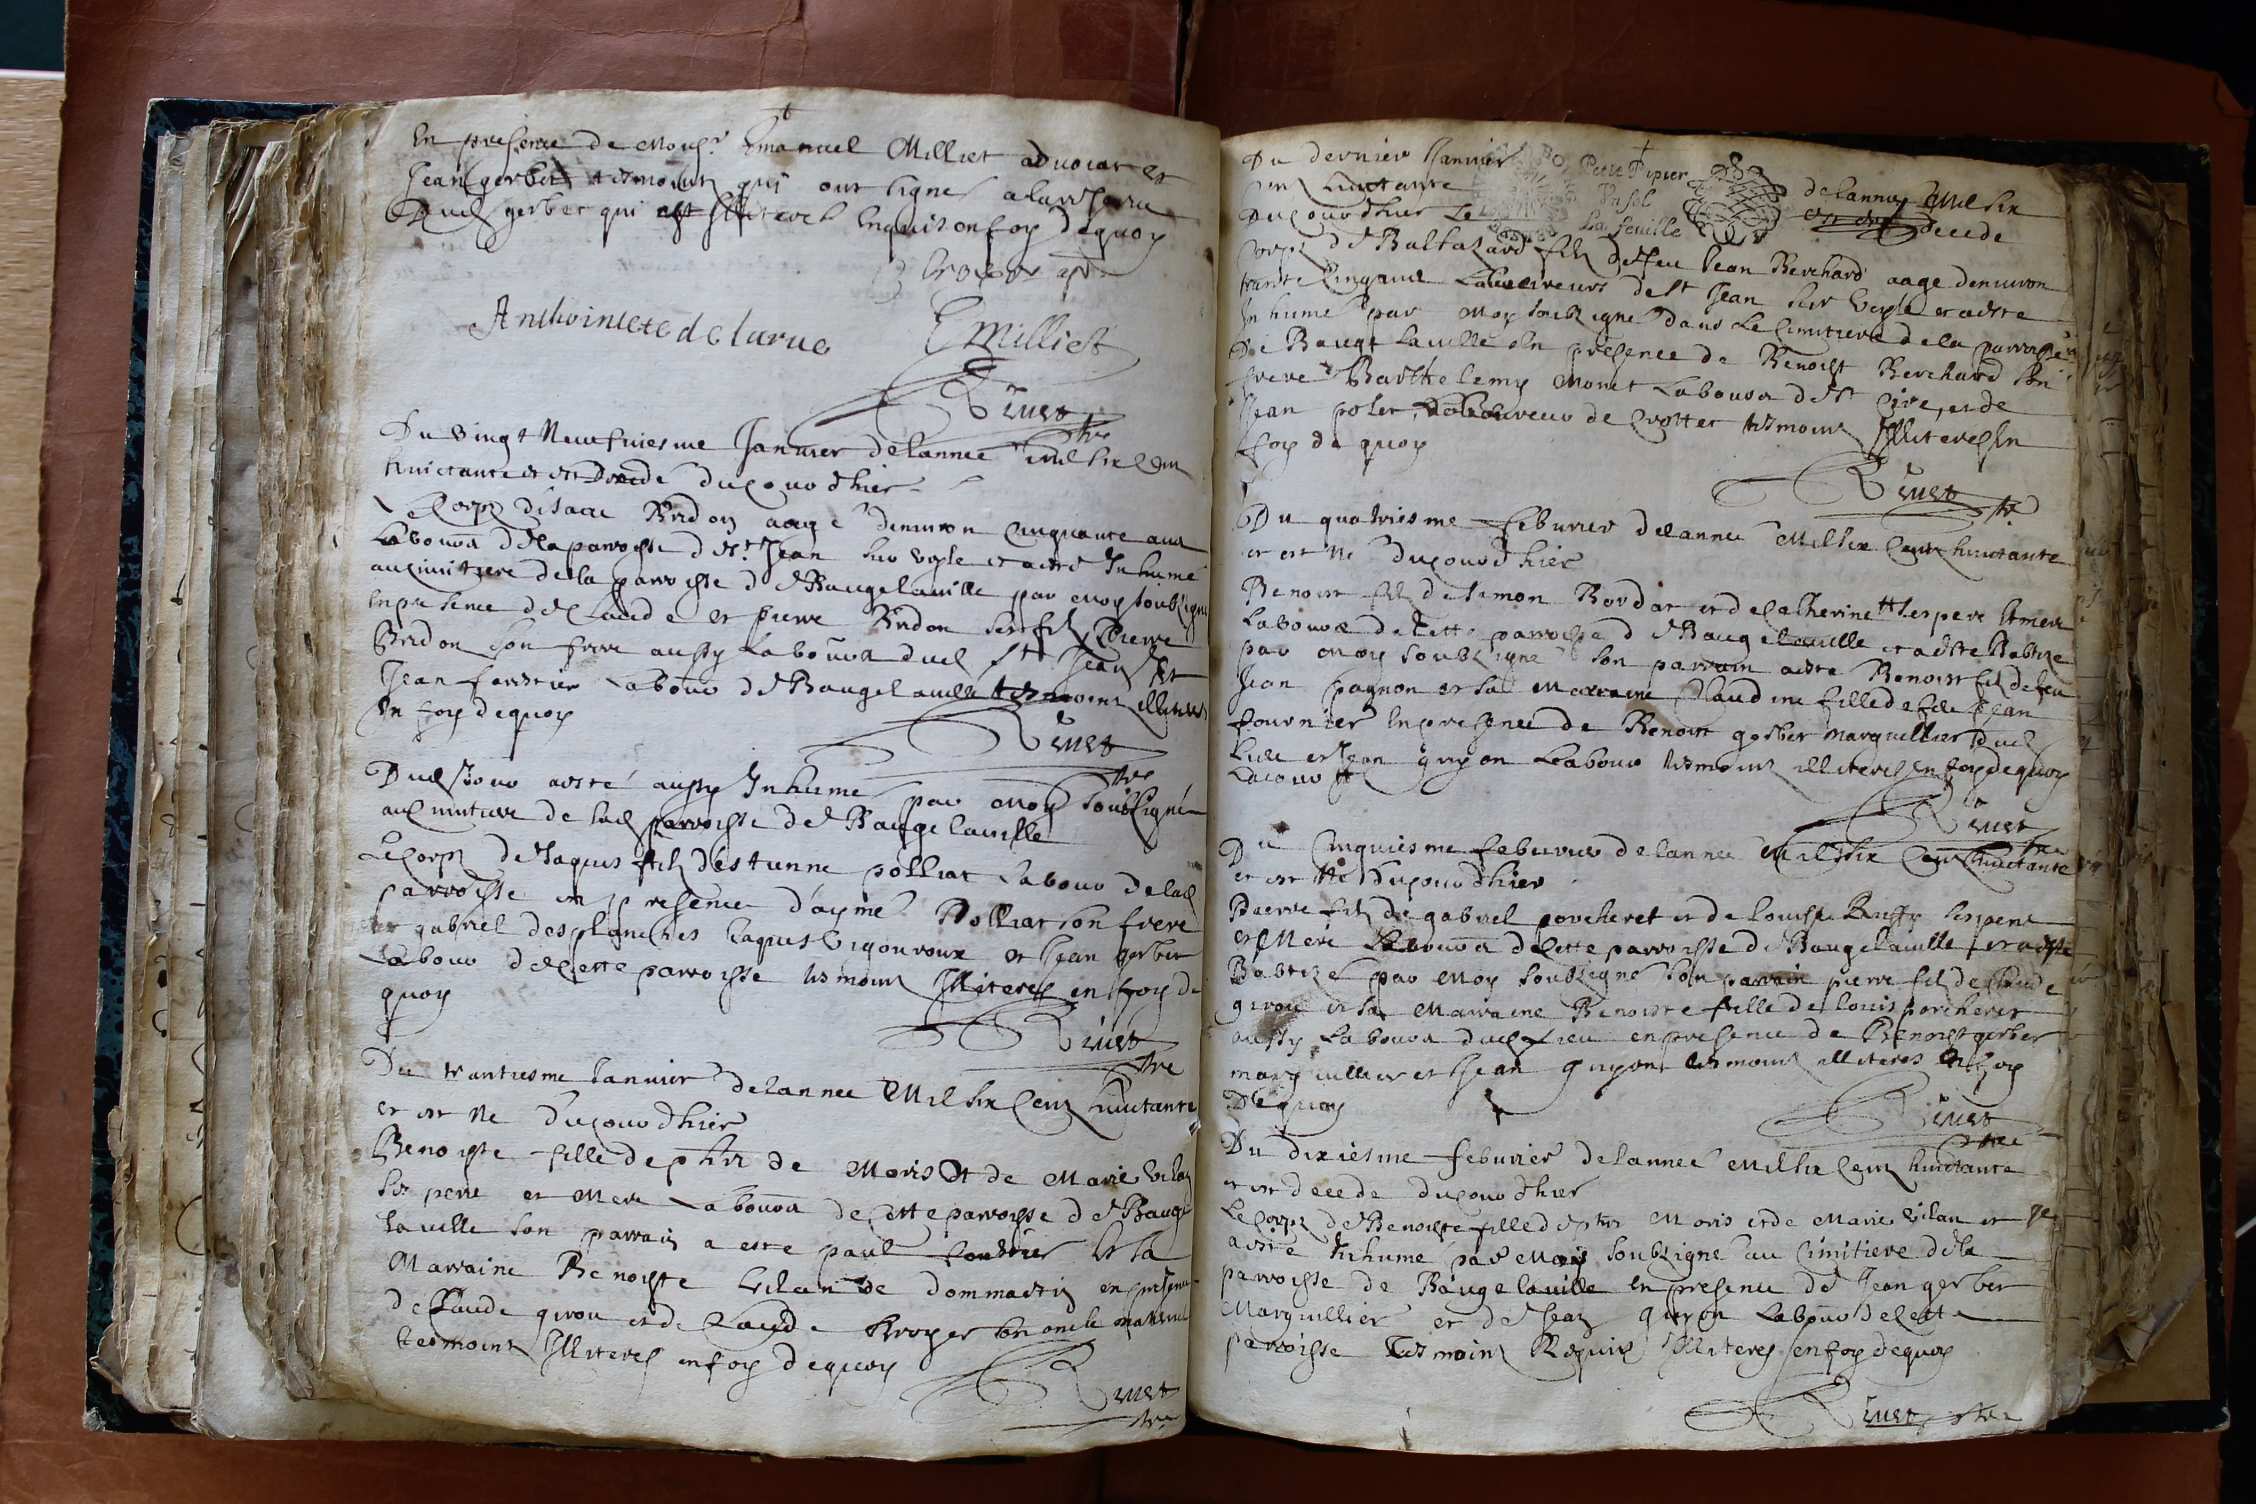 En presence de Monsr. Emanuel Milliet advocat et
Jean gerber tesmoins qui ont signes a la reserve
dud gerber qui est Illiteres Enquis en foy dequoy
Anthoiniete de larue
EMilliet
Rivet
ptre
Du vingt Neufviesme Janvier de lannee mil six Cent
huictante et est Decede dujourdhier
Le Corps disaac Bridon aage denviron cinquante ans
Labour de la paroisse de St Jean sur veyle et a esté Inhumé
au cimitiere de la parroisse de Baugé la ville par moy soubsigné
En presence de Claude et pierre Bridon ses fils pierre
Bridon son frere aussy Labour dud St Jean Et
Jean forestier Labour de Baugé la ville tesmoins illiteres
En foy dequoy
Rivet
ptre
Dud Jour a esté aussy Inhumé par moy soubsigné
au cimitiere de lad parroisse de Baugé la ville
Le Corps de Jaques fils destienne polliat Labour de lad
parroisse en presence d'aymé Polliat son frere
gabriel desplanches Jaques vigouroux et Jean gerber
Labour de Cette parroisse tesmoins Illiteres en foy de
quoy
Rivet
ptre
Du trantiesme Janvier de lannee Mil six Cent huictante
et est Né dujourdhier
Benoiste fille de phir de Moris Et de Marie vilan
ses pere et Mere Labour de Cette parroisse de Baugé
la ville son parrain a este paul forestier Et sa
Marraine Benoiste vilan de dommartin en presence
de Claude girou et de Claude Broyer son oncle maternel
tesmoins Illiteres en foy dequoy
Rivet
ptre
Du dernier Janvier de lannee Mil six
Petit Papier
Un sol
La feuille
Cent huictante et est decede
Dujourdhier Le
Corps de Baltazard fils de feu Jean Berchard aage denviron
trante Cinq ans Laboureur de St Jean sur veyle et a esté
Inhumé par moy soubsigné dans Le Cimitiere de la parroisse
De Baugé la ville En presence de Benoist Berchard son
frere Barthelemy Monet Labour de St Cire, et de
Jean polet Laboureur de Crottet tesmoins Illiteres En
foy dequoy
Rivet
ptre
Du quatriesme febvrier de lannee Mil six Cent huictante
et est Né dujourdhier
Benoist fils de simon Bordat et de Catherine ses pere Et mere
Labour de Cette parroisse de Baugé la ville et a esté Babtizé
par moy soubsigné son parrain a esté Benoist fils de feu
Jean pagnon et sa Marraine Claudine fille de feu Jean
fournier En presence de Benoist gerber Marguillier dud
Lieu et Jean guyon Labour tesmoins illiteres en foy dequoy
Rivet
ptre
Du Cinquiesme febvrier de lannee Mil six Cent huictante
et est Né dujourdhier
Pierre fils de gabriel porcheret et de Louise Ruffy ses pere
et Mere Labour de Cette parroisse de Baugé la ville, et a esté
Babtizé par Moy soubsigné son parrain pierre fils de Claude
girou et sa Marraine Benoiste fille de Louis porcheret
aussy Labour dud Lieu en presence de Benoist gerber
marguillier et Jean guyon tesmoins illiteres En foy
Dequoy
Rivet
ptre
Du dixiesme febvrier de lannee Mil six Cent huictante
et est decede dujourdhier
Le Corps de Benoiste fille de phir Moris et de Marie vilan et
a esté Inhumé par Moy soubsigné au Cimitiere de la
parroisse de Baugé la ville En presence de Jean gerber
Marguillier et de Jean guyon Labour de Cette
parroisse Tesmoins Requis Illiteres en foy dequoy
Rivet ptre